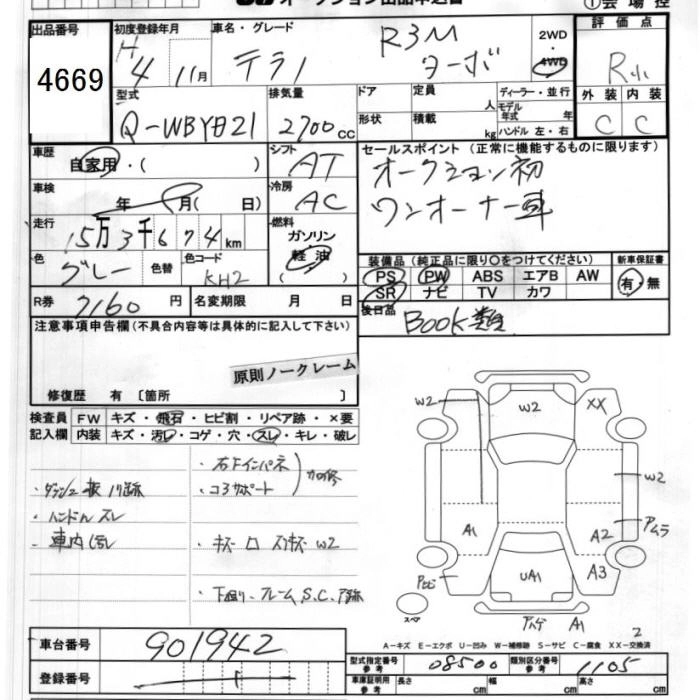 オークション出品申込書
①会場控
出品番号
4669
初度登録年月
H4 11月
車名・グレード
テラノ
R3M
ターボ
2WD
・
4WD
評価点
R小
外装 内装
C C
型式
Q-WBYD21
排気量
2700cc
ドア
形状
定員 人
積載 kg
ディーラー・並行
モデル年式 年
ハンドル 左・右
車歴
自家用・( )
シフト
AT
車検
年 月( 日)
冷房
AC
走行
15万3千674km
燃料
ガソリン
軽油
( )
色
グレー
色替
色コード
KH2
R券
7160円
名変期限 月 日
セールスポイント(正常に機能するものに限ります)
オークション初
ワンオーナー車
装備品(純正品に限り○をつけてください)
新車保証書
PS PW ABS エアB AW
SR ナビ TV カワ
有・無
後日品
BOOK類
注意事項申告欄(不具合内容等は具体的に記入して下さい)
原則ノークレーム
修復歴 有 〔箇所 〕
検査員記入欄
FW キズ・飛石・ヒビ割・リペア跡・×要
内装 キズ・汚レ・コゲ・穴・スレ・キレ・破レ
・ハンドルスレ
・車内汚レ
・右Fインパネ
・コアサポート
・下廻り、フレームS.C.
W2
W2
XX
W2
アムラ
A1
A2
A3
UA1
スペア
A1
2
A-キズ E-エクボ U-凹み W-補修跡 S-サビ C-腐食 XX-交換済
車台番号
901942
登録番号
型式指定番号
参考
08500
類別区分番号
参考
1105
車庫証明用
参考
長さ cm
幅 cm
高さ cm